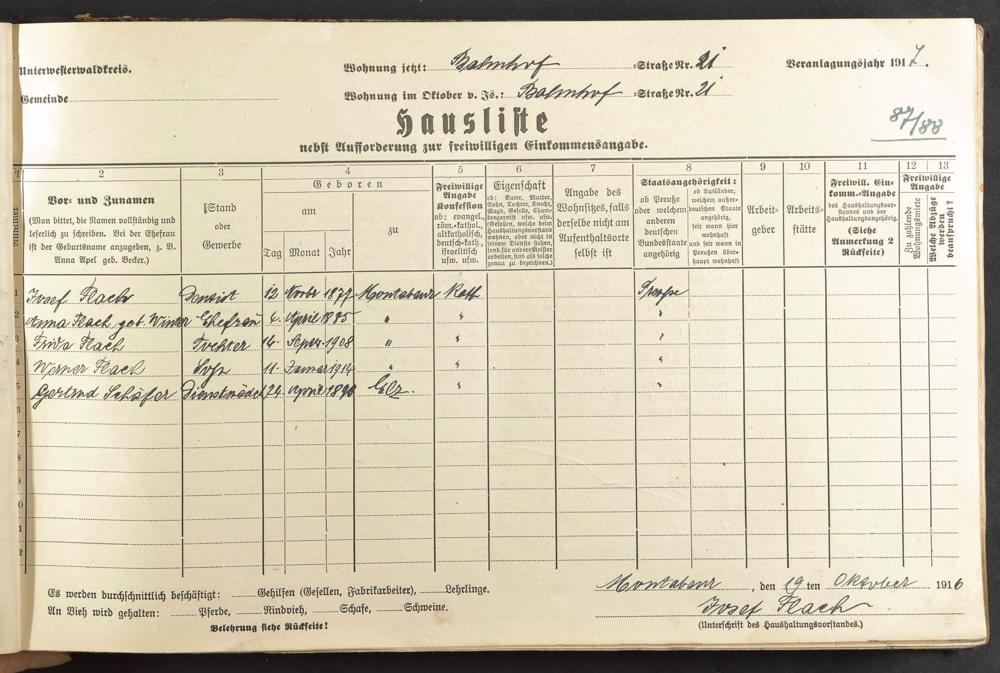 Unterwesterwaldkreis.
Wohnung jetzt: Bahnhof =Straße Nr. 21
Veranlagungsjahr 1917.
Gemeinde
Wohnung im Oktober v. Js.: Bahnhof =Straße Nr. 21
87/88
Hausliste
nebst Aufforderung zur freiwilligen Einkommensangabe.
1 2 3 4 5 6 7 8 9 10 11 12 13
Nummer
Vor= und Zunamen
(Man bittet, die Namen vollständig und
leserlich zu schreiben. Bei der Ehefrau
ist der Geburtsname anzugeben, z. B.
Anna Apel geb. Becker.)
Stand
oder
Gewerbe
Geboren
am
Tag Monat Jahr
zu
Freiwillige
Angabe
Konfession
ob: evangel.,
röm.=kathol.,
altkatholisch,
deutsch=kath.,
israelitisch
usw. usw.
Eigenschaft
ob: Vater, Mutter,
Sohn, Tochter, Knecht,
Magd, Geselle, Cham-
bregarnist usw. usw.
(Gesellen, welche beim
Haushaltungsvorstand
wohnen, aber nicht in
seinem Dienste stehen,
sond. für andere Meister
arbeiten, sind als solche
genau zu bezeichnen.)
Angabe des
Wohnsitzes, falls
derselbe nicht am
Aufenthaltsorte
selbst ist
Staatsangehörigkeit:
ob Preuße
oder welchem
anderen
deutschen
Bundesstaate
angehörig
ob Ausländer,
welchem außer-
deutschen Staate
angehörig,
seit wann hier
wohnhaft
und seit wann in
Preußen über-
haupt wohnhaft
Arbeit-
geber
Arbeits-
stätte
Freiwill. Ein-
komm.=Angabe
des Haushaltungsvor-
standes und der
Haushaltungsangehörig.
(Siehe
Anmerkung 2
Rückseite)
Freiwillige
Angabe
Zu zahlende
Wohnungsmiete
Welche Abzüge
werden
beansprucht?
1 Josef Flach Dentist 12 Novbr 1877 Montabaur Kath Preuße
2 Anna Flach geb. Winter Ehefrau 4. April 1885 " " "
3 Frida Flach Tochter 14. Septr. 1908 " " "
4 Werner Flach Sohn 11. Januar 1914 " " "
5 Gertrud Schäfer Dienstmädch 24. April 1898 " "
6
7
8
9
0
1
2
Es werden durchschnittlich beschäftigt: Gehilfen (Gesellen, Fabrikarbeiter), Lehrlinge.
An Vieh wird gehalten: Pferde, Rindvieh, Schafe, Schweine.
Belehrung siehe Rückseite!
Montabaur, den 19ten Oktober 1916
Josef Flach
(Unterschrift des Haushaltungsvorstandes.)